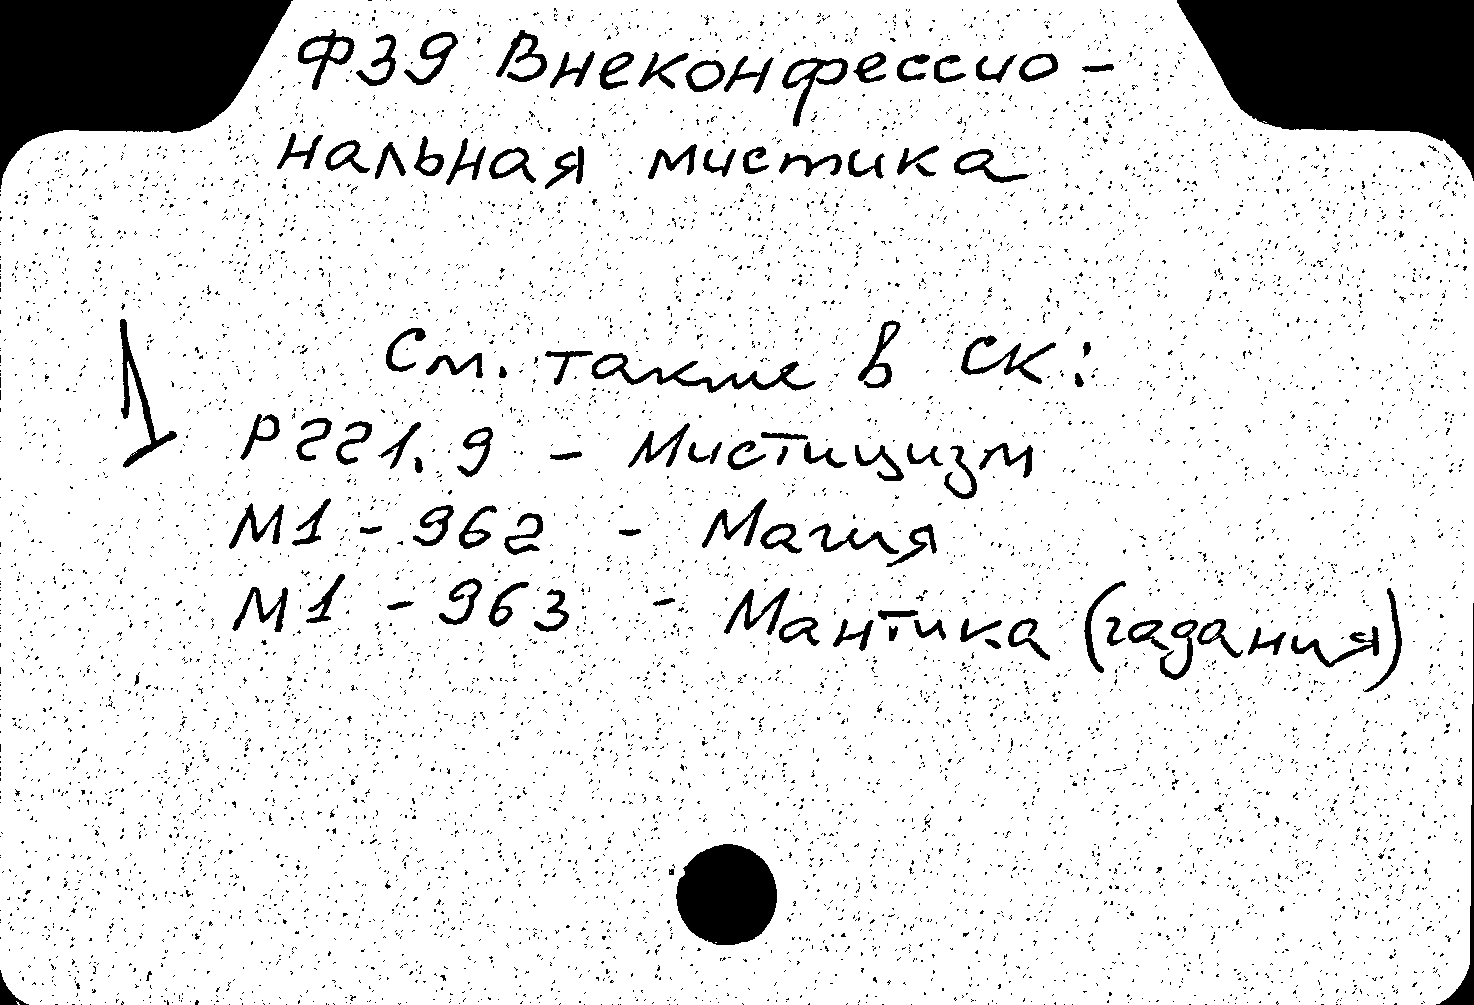 Ф39 Внеконфессио-
нальная мистика
См. также в СК:
Р221.9 - Мистицизм
М1 - 962 - Магия
М1 - 963 - Мантика (гадания)